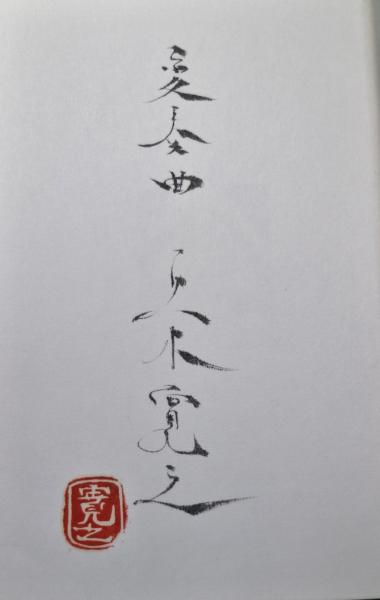 変奏曲
五木寛之
寛之